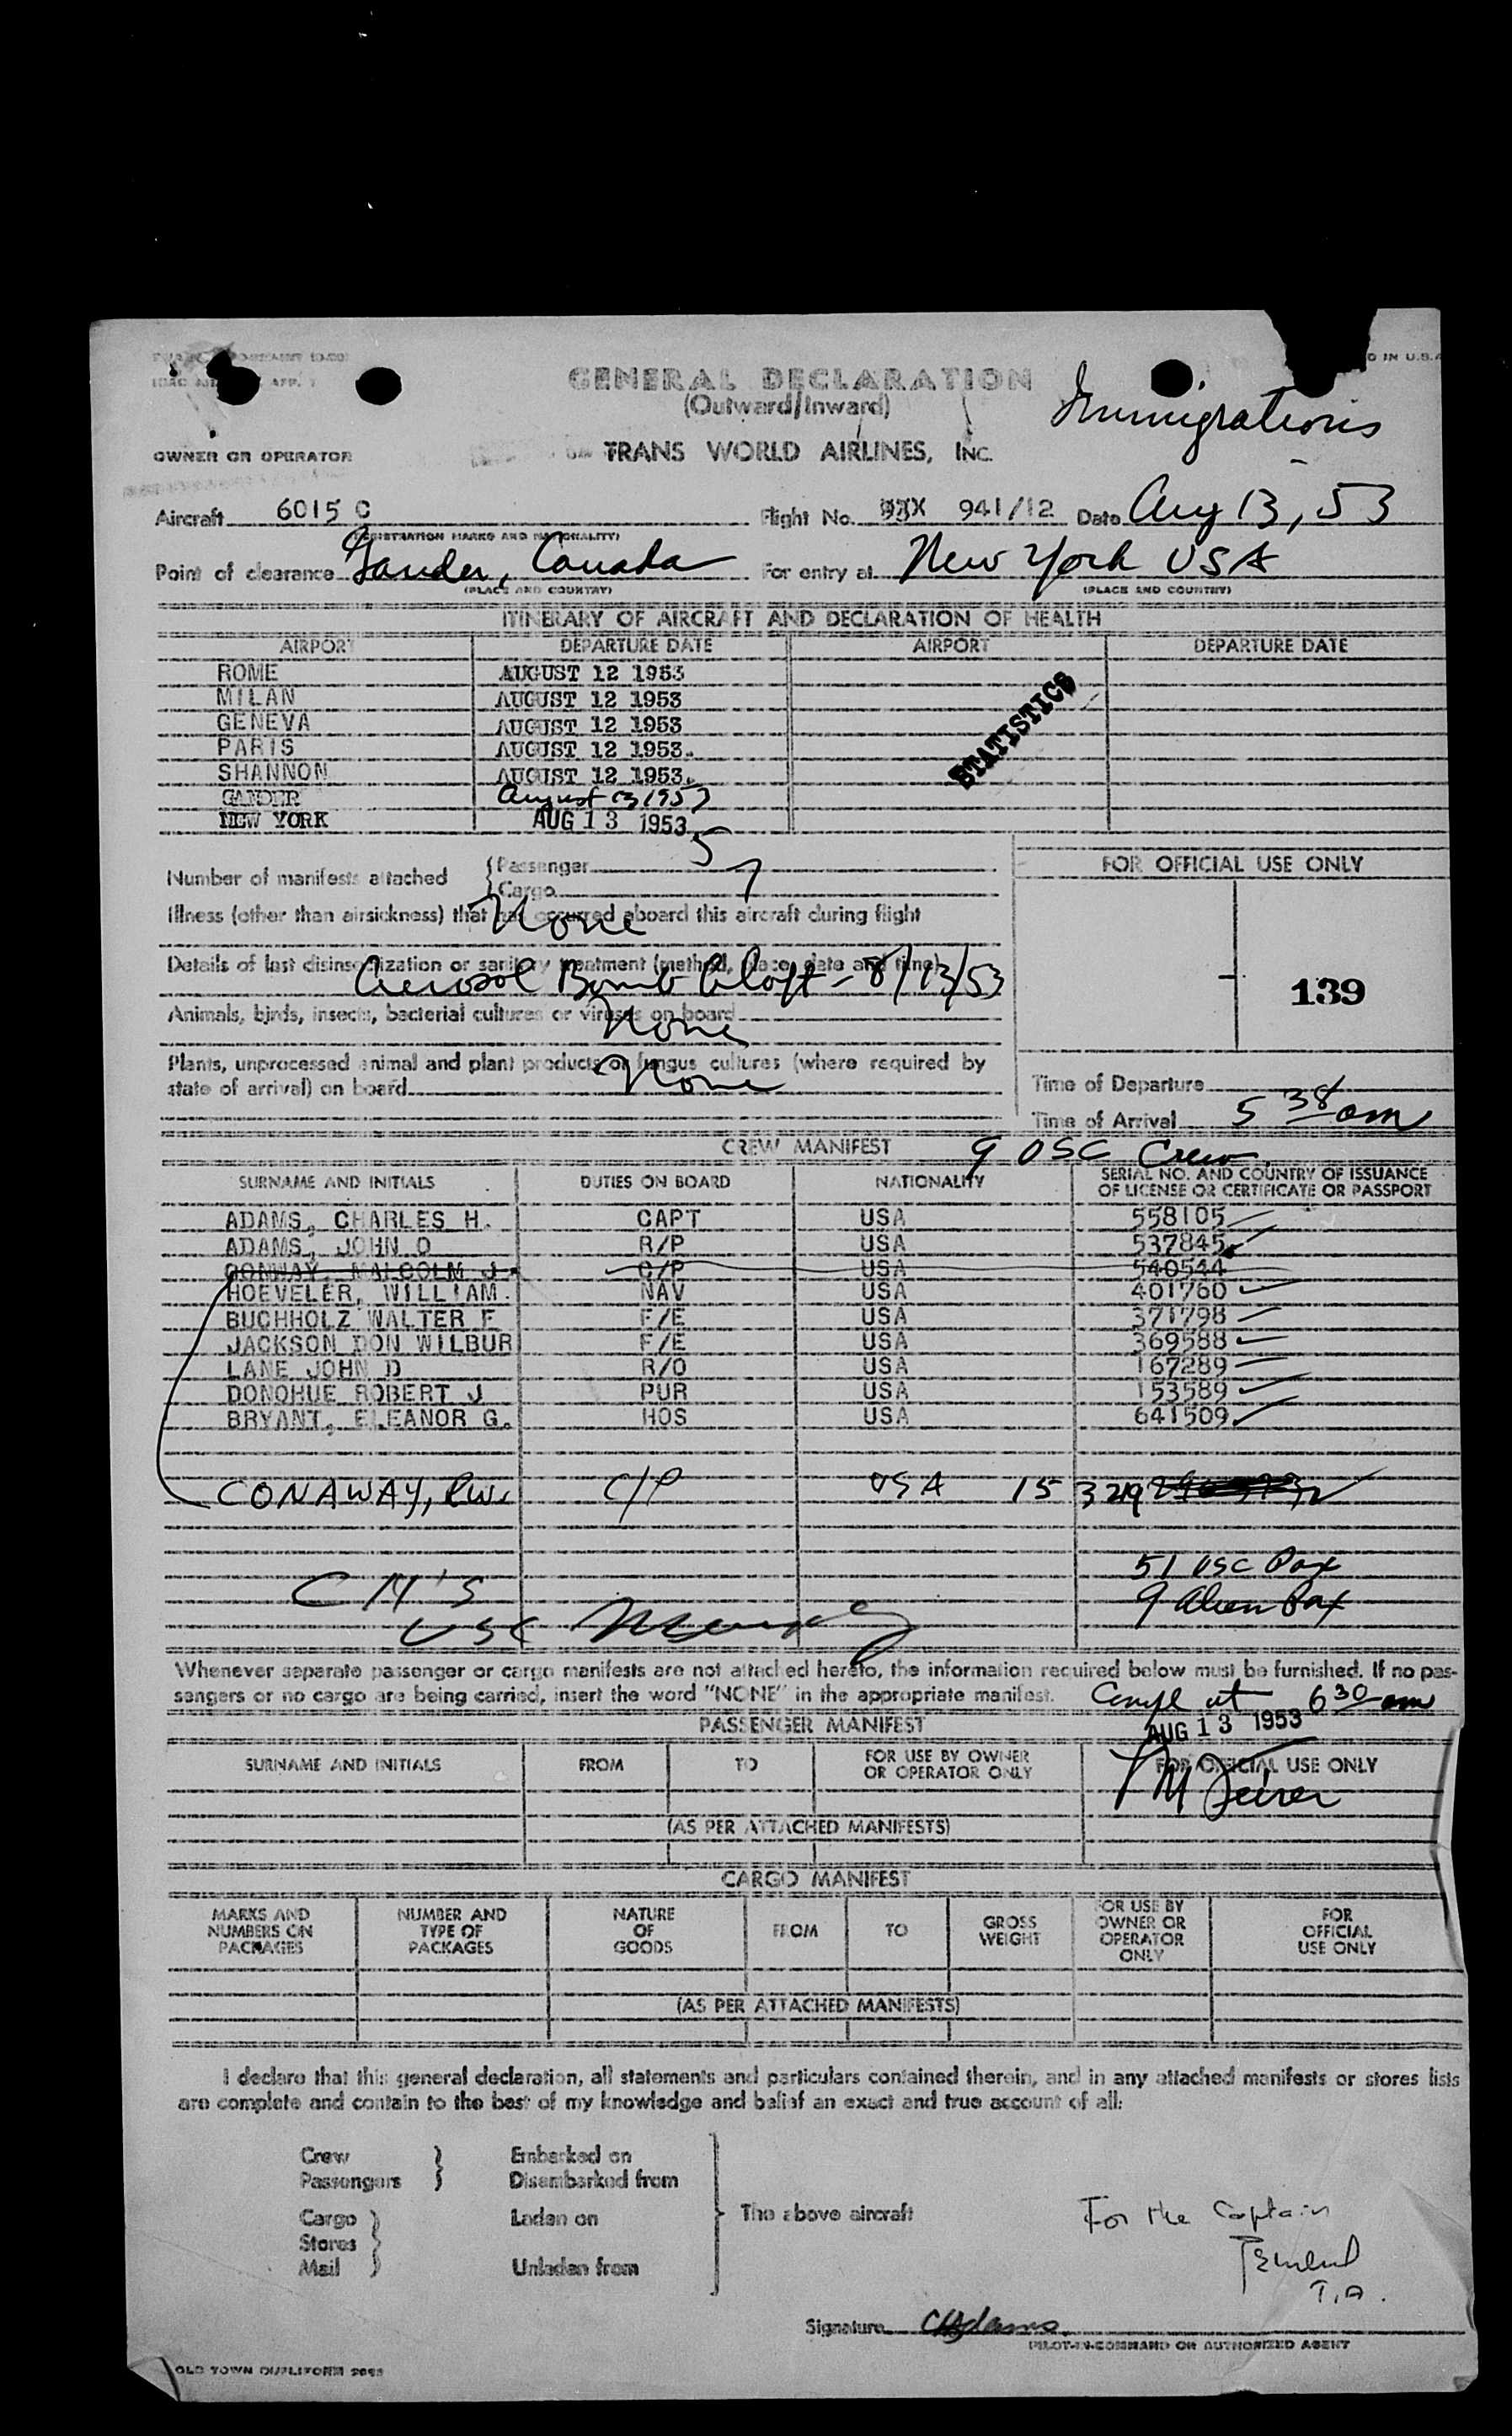 D IN U.S.A
GENERAL DECLARATION
(Outward/Inward)
Immigrations
OWNER OR OPERATOR
TRANS WORLD AIRLINES, INC.
Aircraft 6015 C Flight No. 941/12 Date Aug 13, 53
(REGISTRATION MARKS AND NATIONALITY)
Point of clearance Gander, Canada For entry at New York USA
(PLACE AND COUNTRY) (PLACE AND COUNTRY)
ITINERARY OF AIRCRAFT AND DECLARATION OF HEALTH
AIRPORT DEPARTURE DATE AIRPORT DEPARTURE DATE
ROME AUGUST 12 1953
MILAN AUGUST 12 1953
GENEVA AUGUST 12 1953
PARIS AUGUST 12 1953.
SHANNON AUGUST 12 1953.
GANDER August 13 1953
NEW YORK AUG 13 1953
STATISTICS
Number of manifests attached
Passenger 5
Cargo 7
FOR OFFICIAL USE ONLY
Illness (other than airsickness) that has occurred aboard this aircraft during flight
None
Details of last disinsectization or sanitary treatment (method, place, date and time)
Aerosol Bomb Aloft - 8/13/53
139
Animals, birds, insects, bacterial cultures or viruses on board
None
Plants, unprocessed animal and plant products or fungus cultures (where required by
state of arrival) on board None
Time of Departure
Time of Arrival 5 38 am
CREW MANIFEST 9 USC Crew
SURNAME AND INITIALS DUTIES ON BOARD NATIONALITY SERIAL NO. AND COUNTRY OF ISSUANCE
OF LICENSE OR CERTIFICATE OR PASSPORT
ADAMS, CHARLES H. CAPT USA 558105
ADAMS, JOHN O R/P USA 537845
CONWAY, MALCOLM J. C/P USA 540544
HOEVELER, WILLIAM. NAV USA 401760
BUCHHOLZ WALTER F F/E USA 371798
JACKSON DON WILBUR F/E USA 369588
LANE JOHN D R/O USA 167289
DONOHUE ROBERT J PUR USA 153589
BRYANT, ELEANOR G. HOS USA 641509
CONAWAY, R.W. C/P USA 15 3219
51 USC Pax
CM'S 9 Alien Pax
USC
Whenever separate passenger or cargo manifests are not attached hereto, the information required below must be furnished. If no pas-
sengers or no cargo are being carried, insert the word "NONE" in the appropriate manifest. Compl at 6 30 am
PASSENGER MANIFEST AUG 13 1953
SURNAME AND INITIALS FROM TO FOR USE BY OWNER
OR OPERATOR ONLY FOR OFFICIAL USE ONLY
(AS PER ATTACHED MANIFESTS)
CARGO MANIFEST
MARKS AND
NUMBERS ON
PACKAGES NUMBER AND
TYPE OF
PACKAGES NATURE
OF
GOODS FROM TO GROSS
WEIGHT FOR USE BY
OWNER OR
OPERATOR
ONLY FOR
OFFICIAL
USE ONLY
(AS PER ATTACHED MANIFESTS)
I declare that this general declaration, all statements and particulars contained therein, and in any attached manifests or stores lists
are complete and contain to the best of my knowledge and belief an exact and true account of all:
Crew Embarked on
Passengers Disembarked from
Cargo Laden on The above aircraft For the Captain
Stores
Mail Unladen from
T.A.
Signature CHAdams
PILOT-IN-COMMAND OR AUTHORIZED AGENT
OLD TOWN DUPLIFORM